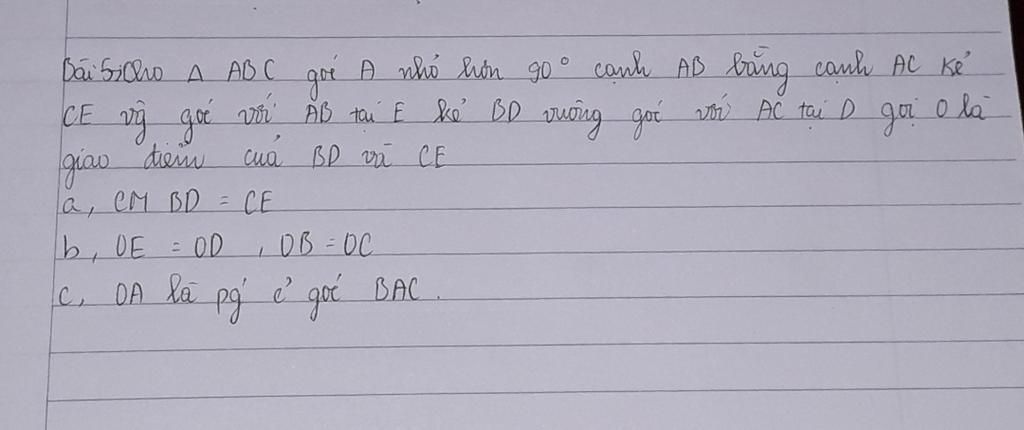 Bài 5: Cho Δ ABC góc A nhỏ hơn 90° cạnh AB bằng cạnh AC kẻ
CE vg góc với AB tại E kẻ BD vuông góc với AC tại D gọi O là
giao điểm của BD và CE
a, CM BD = CE
b, OE = OD , OB = OC
c, OA là pg c' góc BAC.